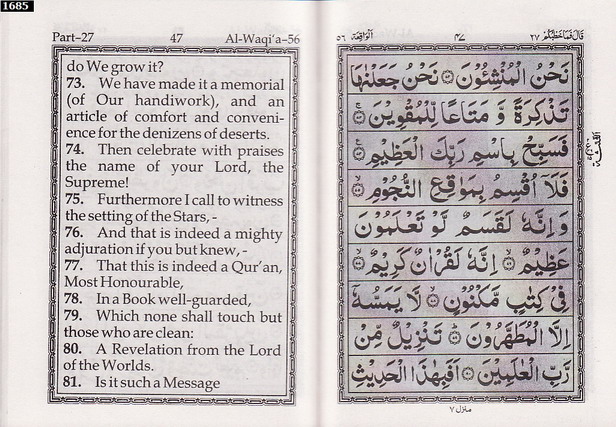 1685
Part–27 47 Al-Waqi'a–56
do We grow it?
73. We have made it a memorial
(of Our handiwork), and an
article of comfort and conveni-
ence for the denizens of deserts.
74. Then celebrate with praises
the name of your Lord, the
Supreme!
75. Furthermore I call to witness
the setting of the Stars, -
76. And that is indeed a mighty
adjuration if you but knew, -
77. That this is indeed a Qur'an,
Most Honourable,
78. In a Book well-guarded,
79. Which none shall touch but
those who are clean:
80. A Revelation from the Lord
of the Worlds.
81. Is it such a Message
قَالَ فَمَا خَطْبُكُمْ ٢٧ ٤٧ اَلْوَاقِعَة ٥٦
نَحْنُ الْمُنْشِـُٔوْنَ ۝ نَحْنُ جَعَلْنٰهَا
تَذْكِرَةً وَّ مَتَاعًا لِّلْمُقْوِيْنَ ۝
فَسَبِّحْ بِاسْمِ رَبِّكَ الْعَظِيْمِ ۝
فَلَاۤ اُقْسِمُ بِمَوٰقِعِ النُّجُوْمِ ۝
وَ اِنَّهٗ لَقَسَمٌ لَّوْ تَعْلَمُوْنَ
عَظِيْمٌ ۝ اِنَّهٗ لَقُرْاٰنٌ كَرِيْمٌ ۝
فِيْ كِتٰبٍ مَّكْنُوْنٍ ۝ لَّا يَمَسُّهٗۤ
اِلَّا الْمُطَهَّرُوْنَ ۝ تَنْزِيْلٌ مِّنْ
رَّبِّ الْعٰلَمِيْنَ ۝ اَفَبِهٰذَا الْحَدِيْثِ
منزل ٧